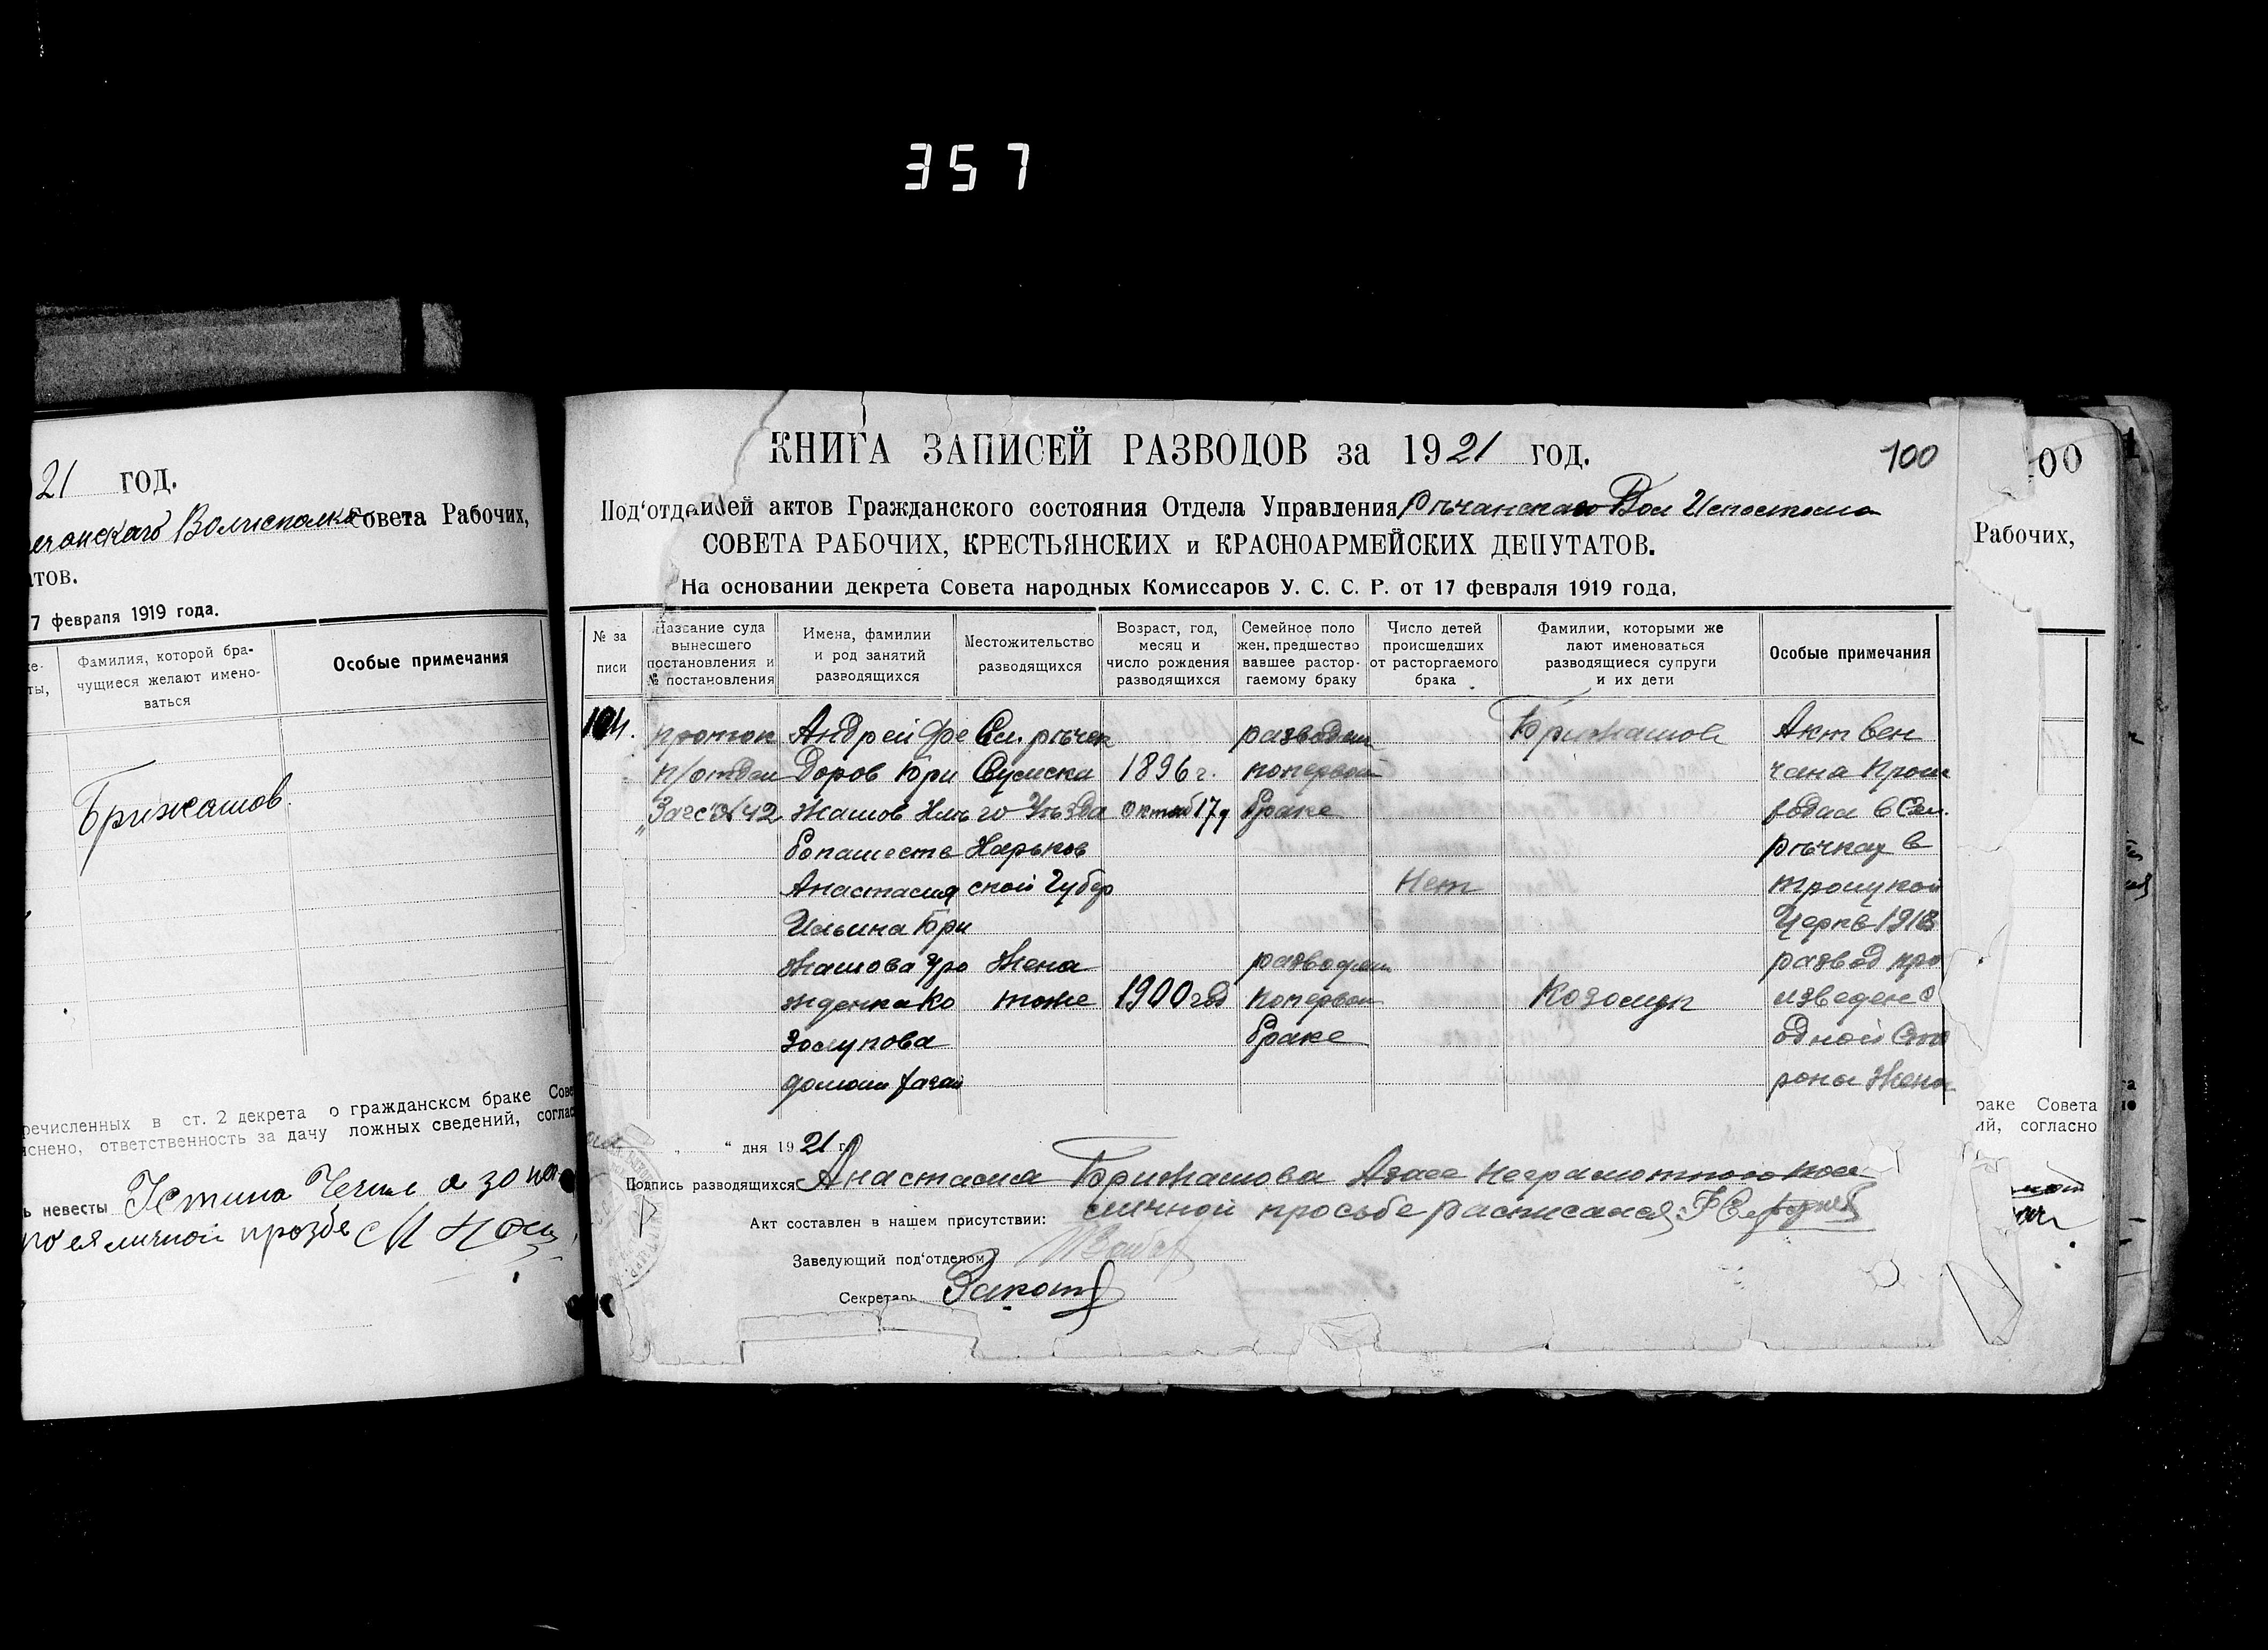 357
21 год.
Волисполкома Совета Рабочих,
атов.
7 февраля 1919 года.
Фамилия, которой бра-
чущиеся желают имено-
ваться
Особые примечания
Брижашов.
речисленных в ст. 2 декрета о гражданском браке Сове
снено, ответственность за дачу ложных сведений, соглас
ь невесты Устина
личной прозбе
КНИГА ЗАПИСЕЙ РАЗВОДОВ за 1921 год.
100
Под'отде ией актов Гражданского состояния Отдела Управления Ръчанскаго Вол Исполкома
СОВЕТА РАБОЧИХ, КРЕСТЬЯНСКИХ и КРАСНОАРМЕЙСКИХ ДЕПУТАТОВ.
На основании декрета Совета народных Комиссаров У. С. С. Р. от 17 февраля 1919 года,
№ за
писи
Название суда
вынесшего
постановления и
№ постановления
Имена, фамилии
и род занятий
разводящихся
Местожительство
разводящихся
Возраст, год,
месяц и
число рождения
разводящихся
Семейное поло
жен. предшество
вавшее растор-
гаемому браку
Число детей
происшедших
от расторгаемого
брака
Фамилии, которыми же
лают именоваться
разводящиеся супруги
и их дети
Особые примечания
104.
проток
п/отдел
Загс № 42
Андрей Фе
доров Бри
жашов Хлъ
бопашеств
Анастасия
Ильина Бри
жашова Уро
жденка Ко
золупова
Сл. ръчек
Сумска
го Уъзда
Харьков
ской Губер
Жена
тоже
1896 г.
Октяб 17 д
1900 год
разводит
попервой
браке
разводит
попервом
браке
Нет
Брижашов
Козолуп
Акт Вен
чана Прои
водил в Сел.
ръчках в
троицкой
Церкв 1918
развод про
изведен с
одной Сто
роны Жены
" дня 1921 г.
Подпись разводящихся: Анастасия Брижашова Азаее неграмотного поее
личной просьбе расписался
Акт составлен в нашем присутствии:
Заведующий под'отделом
Секретарь
00
Рабочих,
раке Совета
ий, согласно